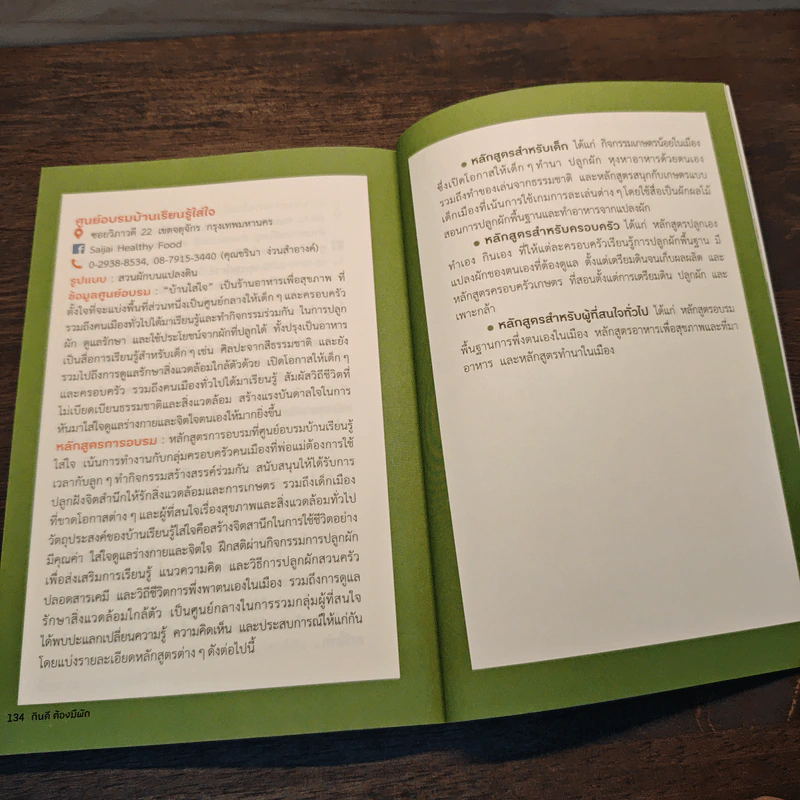 ศูนย์อบรมบ้านเรียนรู้ใส่ใจ
ซอยวิภาวดี 22 เขตจตุจักร กรุงเทพมหานคร
Saijai Healthy Food
0-2938-8534, 08-7915-3440 (คุณชรินา ง่วนสำอางค์)
รูปแบบ : สวนผักบนแปลงดิน
ข้อมูลศูนย์อบรม : "บ้านใส่ใจ" เป็นร้านอาหารเพื่อสุขภาพ ที่
ตั้งใจที่จะแบ่งพื้นที่ส่วนหนึ่งเป็นศูนย์กลางให้เด็ก ๆ และครอบครัว
รวมถึงคนเมืองทั่วไปได้มาเรียนรู้และทำกิจกรรมร่วมกัน ในการปลูก
ผัก ดูแลรักษา และใช้ประโยชน์จากผักที่ปลูกได้ ทั้งปรุงเป็นอาหาร
เป็นสื่อการเรียนรู้สำหรับเด็ก ๆ เช่น ศิลปะจากสีธรรมชาติ และยัง
รวมไปถึงการดูแลรักษาสิ่งแวดล้อมใกล้ตัวด้วย เปิดโอกาสให้เด็ก ๆ
และครอบครัว รวมถึงคนเมืองทั่วไปได้มาเรียนรู้ สัมผัสวิถีชีวิตที่
ไม่เบียดเบียนธรรมชาติและสิ่งแวดล้อม สร้างแรงบันดาลใจในการ
หันมาใส่ใจดูแลร่างกายและจิตใจตนเองให้มากยิ่งขึ้น
หลักสูตรการอบรม : หลักสูตรการอบรมที่ศูนย์อบรมบ้านเรียนรู้
ใส่ใจ เน้นการทำงานกับกลุ่มครอบครัวคนเมืองที่พ่อแม่ต้องการใช้
เวลากับลูก ๆ ทำกิจกรรมสร้างสรรค์ร่วมกัน สนับสนุนให้ได้รับการ
ปลูกฝังจิตสำนึกให้รักสิ่งแวดล้อมและการเกษตร รวมถึงเด็กเมือง
ที่ขาดโอกาสต่าง ๆ และผู้ที่สนใจเรื่องสุขภาพและสิ่งแวดล้อมทั่วไป
วัตถุประสงค์ของบ้านเรียนรู้ใส่ใจคือสร้างจิตสำนึกในการใช้ชีวิตอย่าง
มีคุณค่า ใส่ใจดูแลร่างกายและจิตใจ ฝึกสติผ่านกิจกรรมการปลูกผัก
เพื่อส่งเสริมการเรียนรู้ แนวความคิด และวิธีการปลูกผักสวนครัว
ปลอดสารเคมี และวิถีชีวิตการพึ่งพาตนเองในเมือง รวมถึงการดูแล
รักษาสิ่งแวดล้อมใกล้ตัว เป็นศูนย์กลางในการรวมกลุ่มผู้ที่สนใจ
ได้พบปะแลกเปลี่ยนความรู้ ความคิดเห็น และประสบการณ์ให้แก่กัน
โดยแบ่งรายละเอียดหลักสูตรต่าง ๆ ดังต่อไปนี้
134 กินดี ต้องมีผัก
● หลักสูตรสำหรับเด็ก ได้แก่ กิจกรรมเกษตรน้อยในเมือง
ซึ่งเปิดโอกาสให้เด็ก ๆ ทำนา ปลูกผัก หุงหาอาหารด้วยตนเอง
รวมถึงทำของเล่นจากธรรมชาติ และหลักสูตรสนุกกับเกษตรแบบ
เด็กเมืองที่เน้นการใช้เกมการละเล่นต่าง ๆ โดยใช้สื่อเป็นผักผลไม้
สอนการปลูกผักพื้นฐานและทำอาหารจากแปลงผัก
● หลักสูตรสำหรับครอบครัว ได้แก่ หลักสูตรปลูกเอง
ทำเอง กินเอง ที่ให้แต่ละครอบครัวเรียนรู้การปลูกผักพื้นฐาน มี
แปลงผักของตนเองที่ต้องดูแล ตั้งแต่เตรียมดินจนเก็บผลผลิต และ
หลักสูตรครอบครัวเกษตร ที่สอนตั้งแต่การเตรียมดิน ปลูกผัก และ
เพาะกล้า
● หลักสูตรสำหรับผู้ที่สนใจทั่วไป ได้แก่ หลักสูตรอบรม
พื้นฐานการพึ่งตนเองในเมือง หลักสูตรอาหารเพื่อสุขภาพและที่มา
อาหาร และหลักสูตรทำนาในเมือง